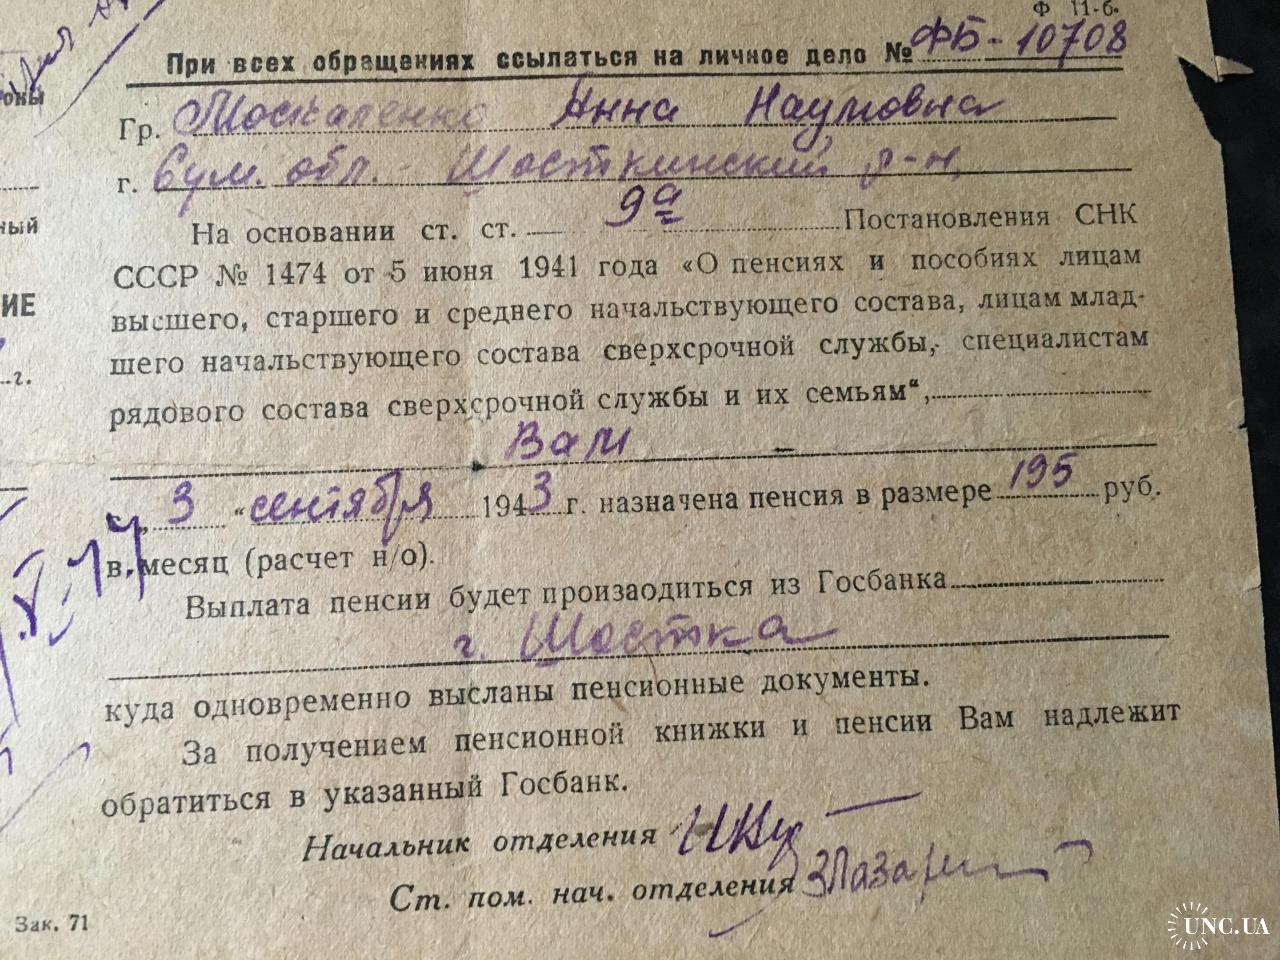 Ф 11-б.
При всех обращениях ссылаться на личное дело № ФБ-10708
Гр. Москаленко Анна Наумовна
г. Сум. обл. Шосткинский р-н
На основании ст. ст. 9а Постановления СНК
СССР № 1474 от 5 июня 1941 года «О пенсиях и пособиях лицам
высшего, старшего и среднего начальствующего состава, лицам млад-
шего начальствующего состава сверхсрочной службы, специалистам
рядового состава сверхсрочной службы и их семьям“,
Вам
с „3 “ сентября 1943 г. назначена пенсия в размере 195 руб.
в месяц (расчет н/о).
Выплата пенсии будет произаодиться из Госбанка
г. Шостка
куда одновременно высланы пенсионные документы.
За получением пенсионной книжки и пенсии Вам надлежит
обратиться в указанный Госбанк.
Начальник отделения
Ст. пом. нач. отделения
Зак. 71
ный
ИЕ
г.
UNC.UA